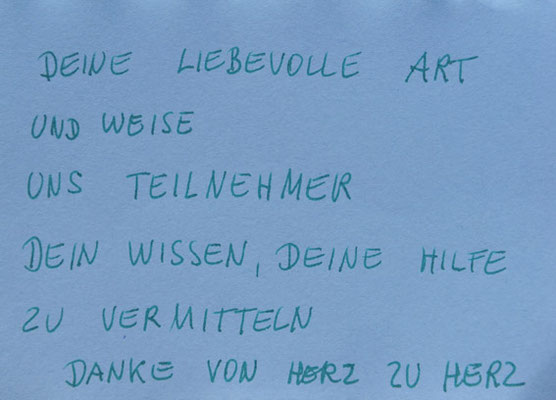 DEINE LIEBEVOLLE ART
UND WEISE
UNS TEILNEHMER
DEIN WISSEN, DEINE HILFE
ZU VERMITTELN
DANKE VON HERZ ZU HERZ